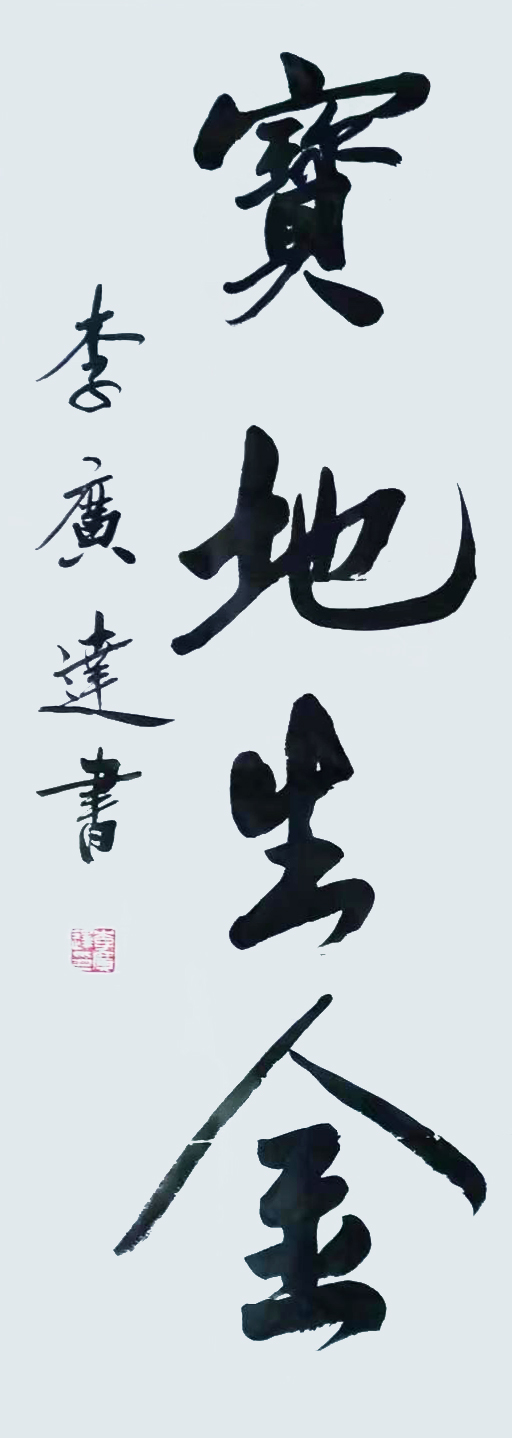 寶地生金
李廣達書